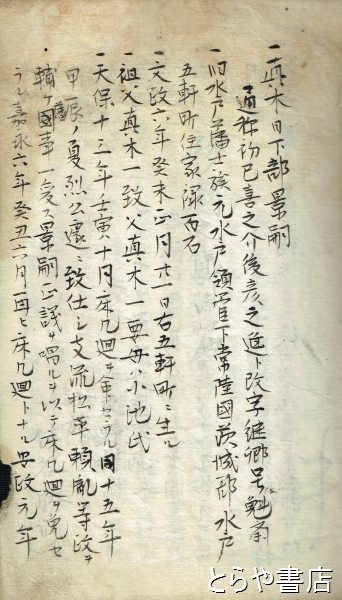 一真木日下部景嗣
通称初巳喜之介後彦之進ト改字継郷号魁斎
一旧水戸藩士族元水戸領臣下常陸國茨城郡水戸
五軒町住家禄百石
一文政六年癸未正月廿一日右五軒町ニ生ル
一祖父真木一致父真木一要母ハ小池氏
一天保十三年壬寅十月床几廻ヲ命セラル同十五年
甲辰ノ夏烈公遽ニ致仕シ支流松平頼胤等政ヲ
輔ケ藩國事一変ス景嗣正議ヲ唱ルヲ以テ床几廻ヲ免セ
ラル嘉永六年癸丑六月再ヒ床几廻トナル安政元年
とらや書店